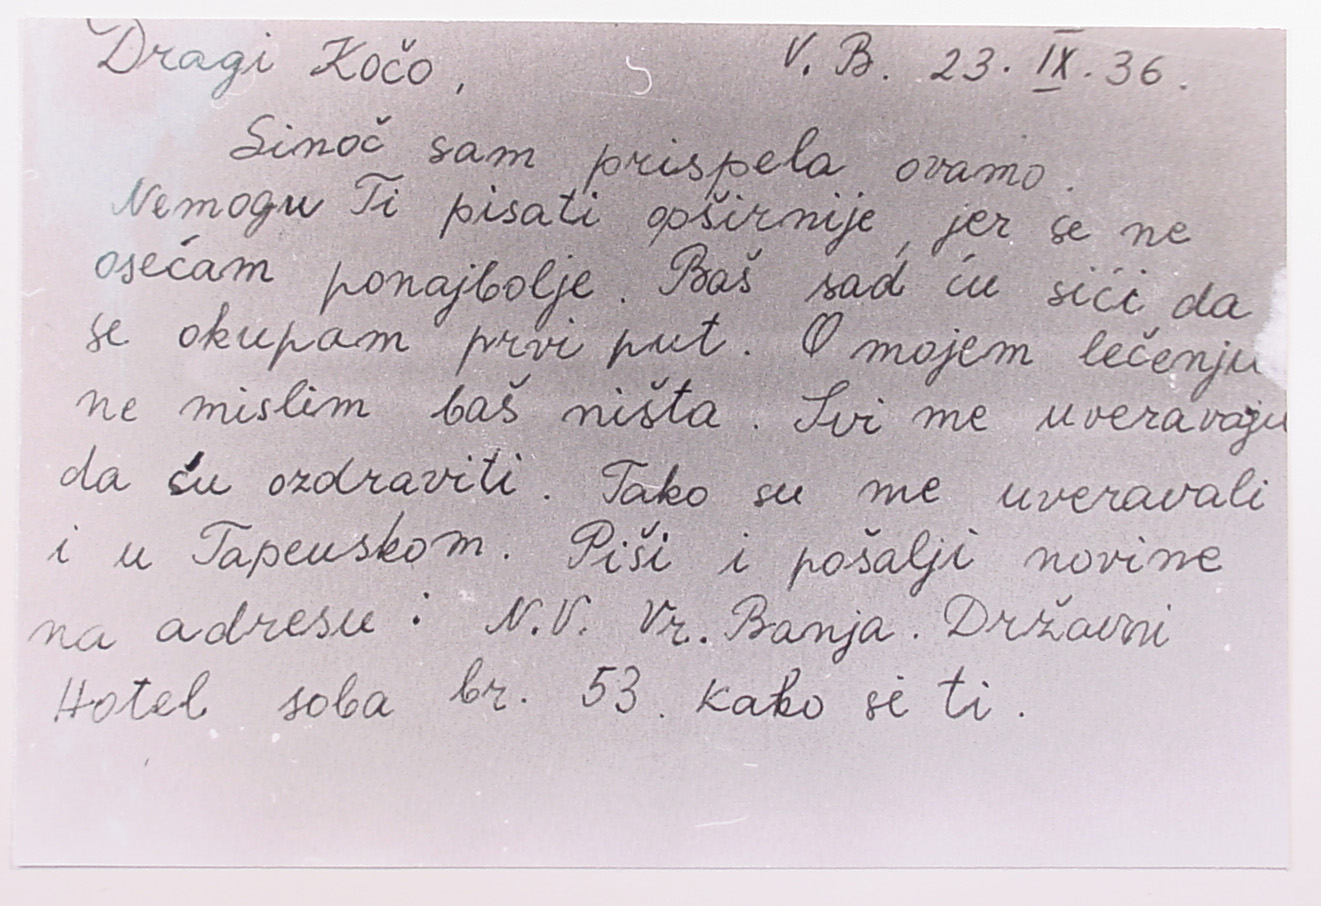 Dragi Kočo, V. B. 23. IX. 36.
Sinoč sam prispela ovamo.
Nemogu Ti pisati opširnije, jer se ne
osećam ponajbolje. Baš sad ću sići da
se okupam prvi put. O mojem lečenju
ne mislim baš ništa. Svi me uveravaju
da ću ozdraviti. Tako su me uveravali
i u Tapeuskom. Piši i pošalji novine
na adresu: N.V. Vr. Banja. Državni
Hotel soba br. 53. kako si ti.